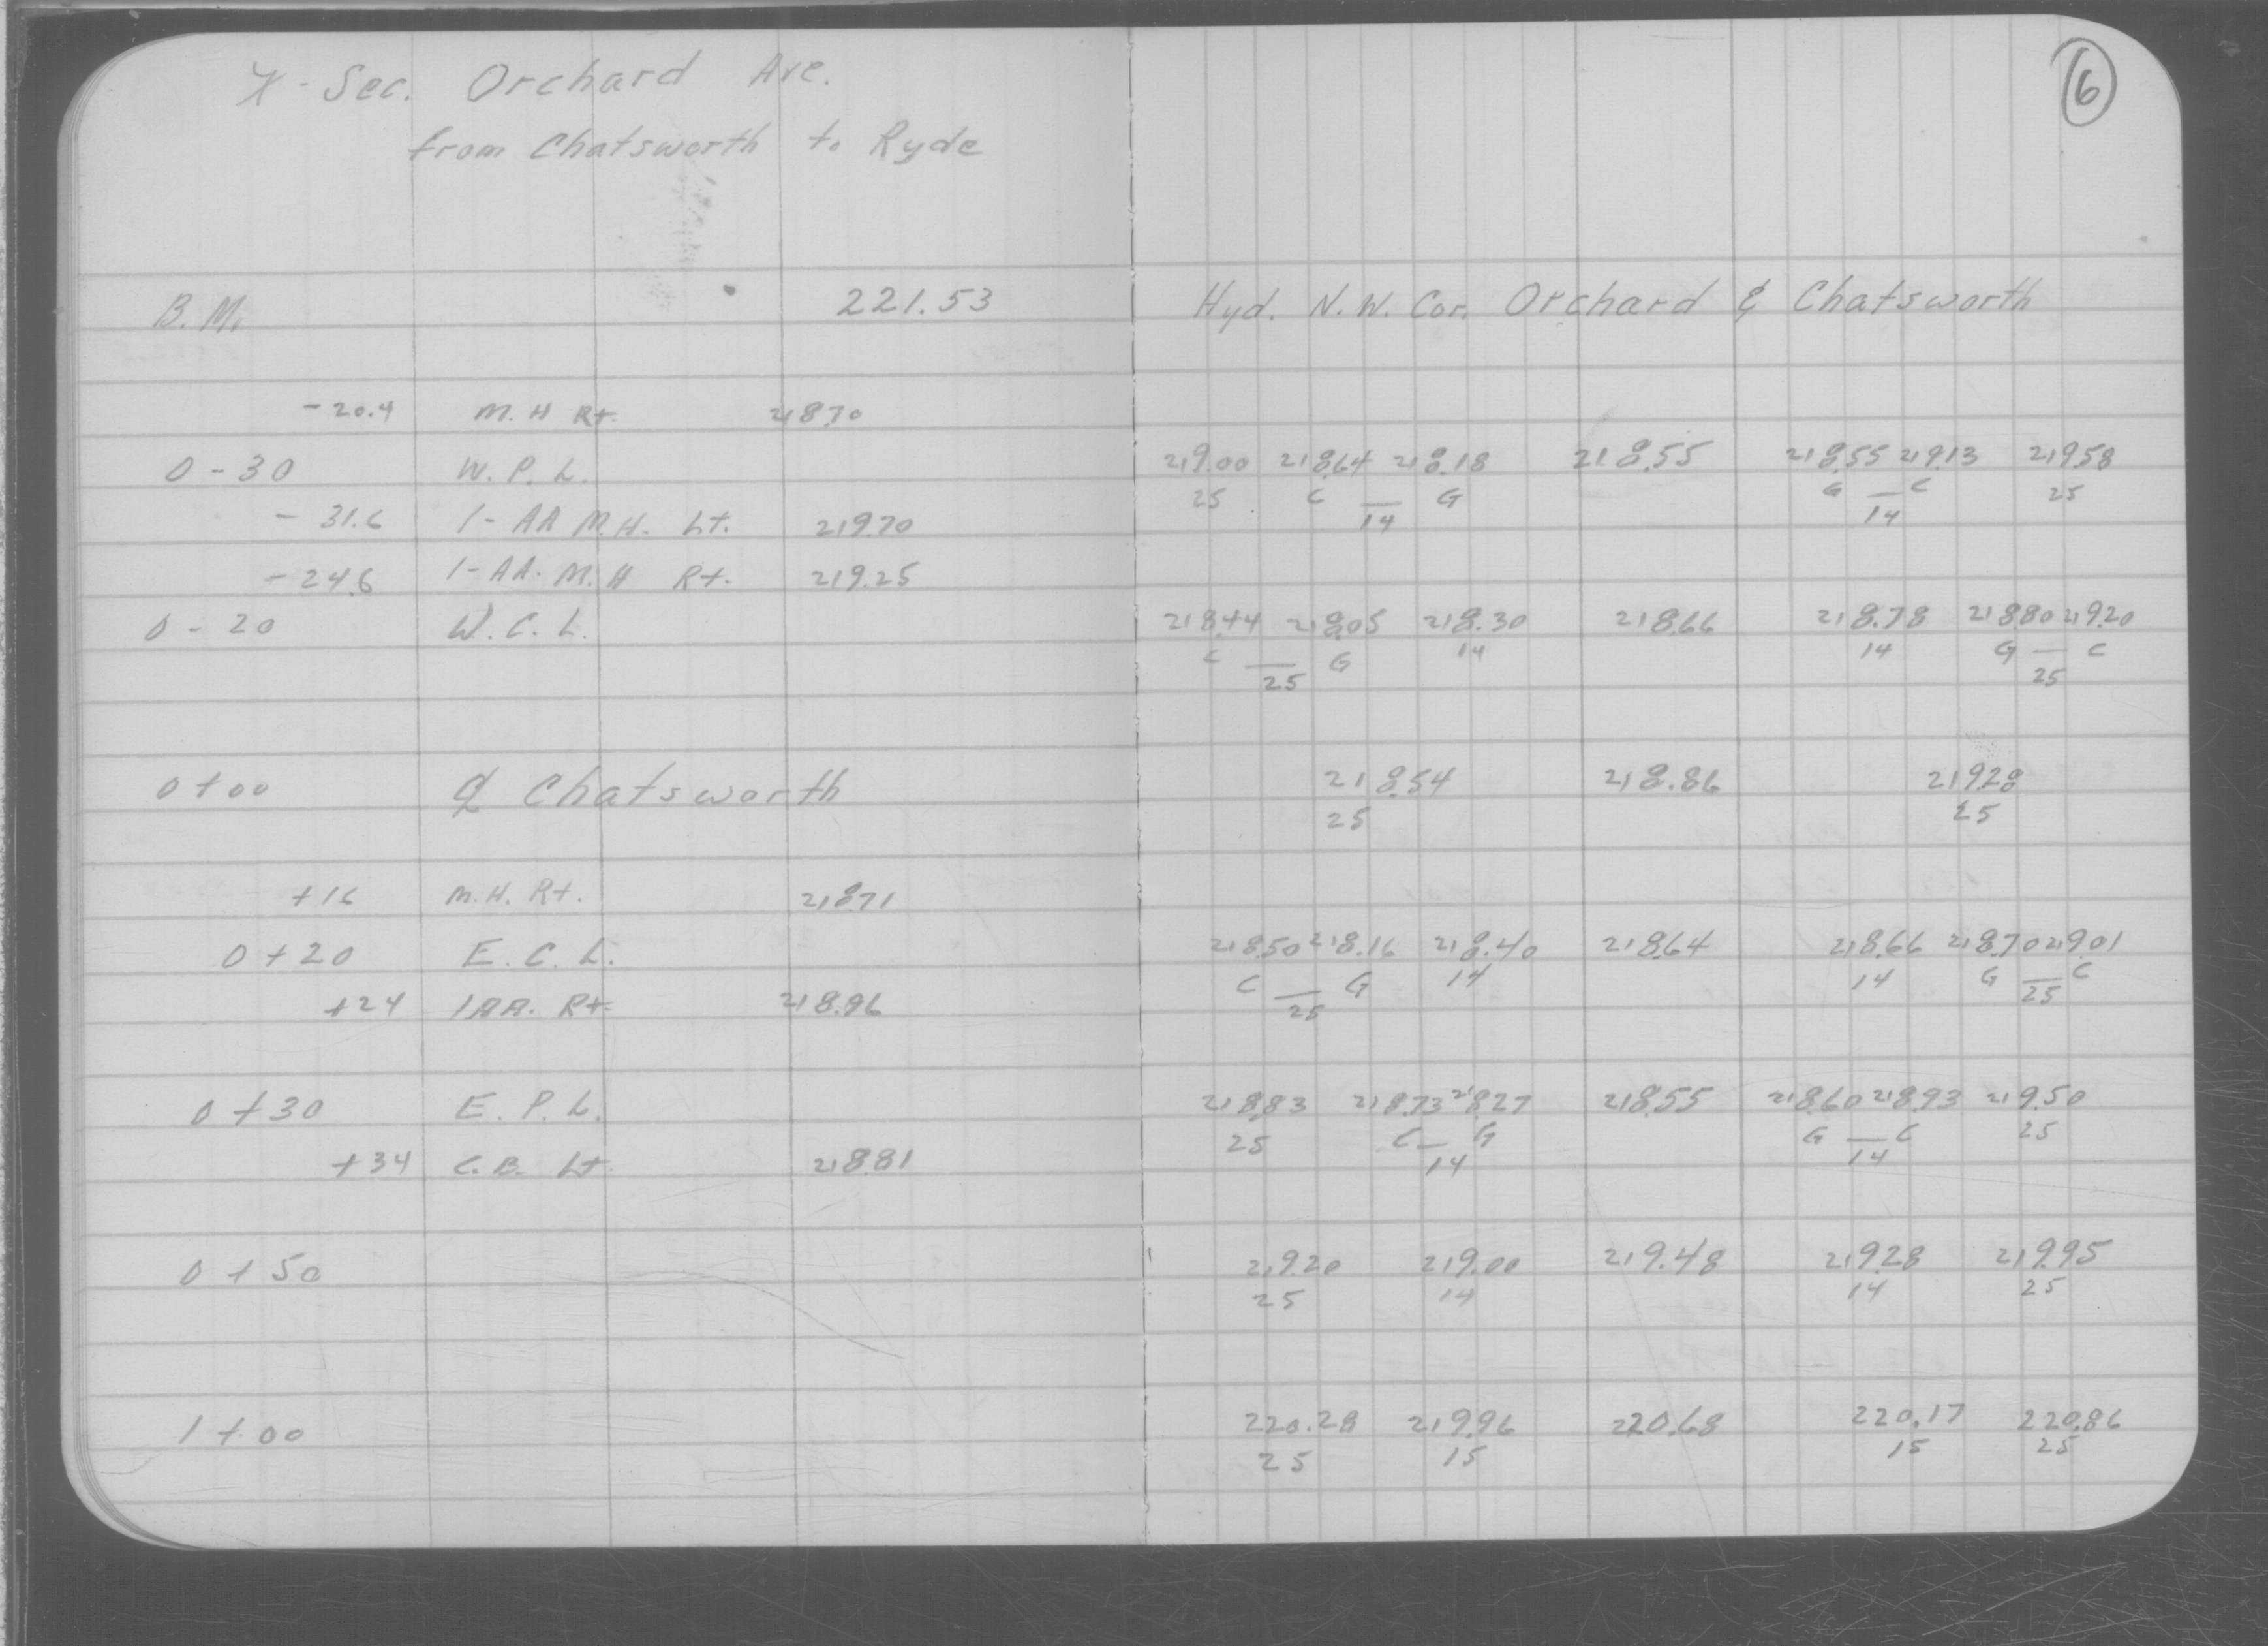 6
X-Sec. Orchard Ave.
from Chatsworth to Ryde
B.M. 221.53 Hyd. N.W. Cor. Orchard & Chatsworth
-20.4 M.H Rt. 218.70
0-30 W.P.L. 219.00 218.64 218.18 218.55 218.55 219.13 219.58
25 C — G G — C 25
14 14
-31.6 1-AA M.H. Lt. 219.70
-24.6 1-AA. M.H Rt. 219.25
0-20 W.C.L. 218.44 218.05 218.30 218.66 218.78 218.80 219.20
C — G 14 14 G — C
25 25
0+00 ℄ Chatsworth 218.54 218.86 219.28
25 25
+16 M.H. Rt. 218.71
0+20 E.C.L. 218.50 218.16 218.40 218.64 218.66 218.70 219.01
C — G 14 14 G — C
25 25
+24 1AA. Rt. 218.96
0+30 E.P.L. 218.83 218.73 218.27 218.55 218.60 218.93 219.50
25 C — G G — C 25
14 14
+34 C.B. Lt. 218.81
0+50 219.20 219.00 219.48 219.28 219.95
25 14 14 25
1+00 220.28 219.96 220.68 220.17 220.86
25 15 15 25